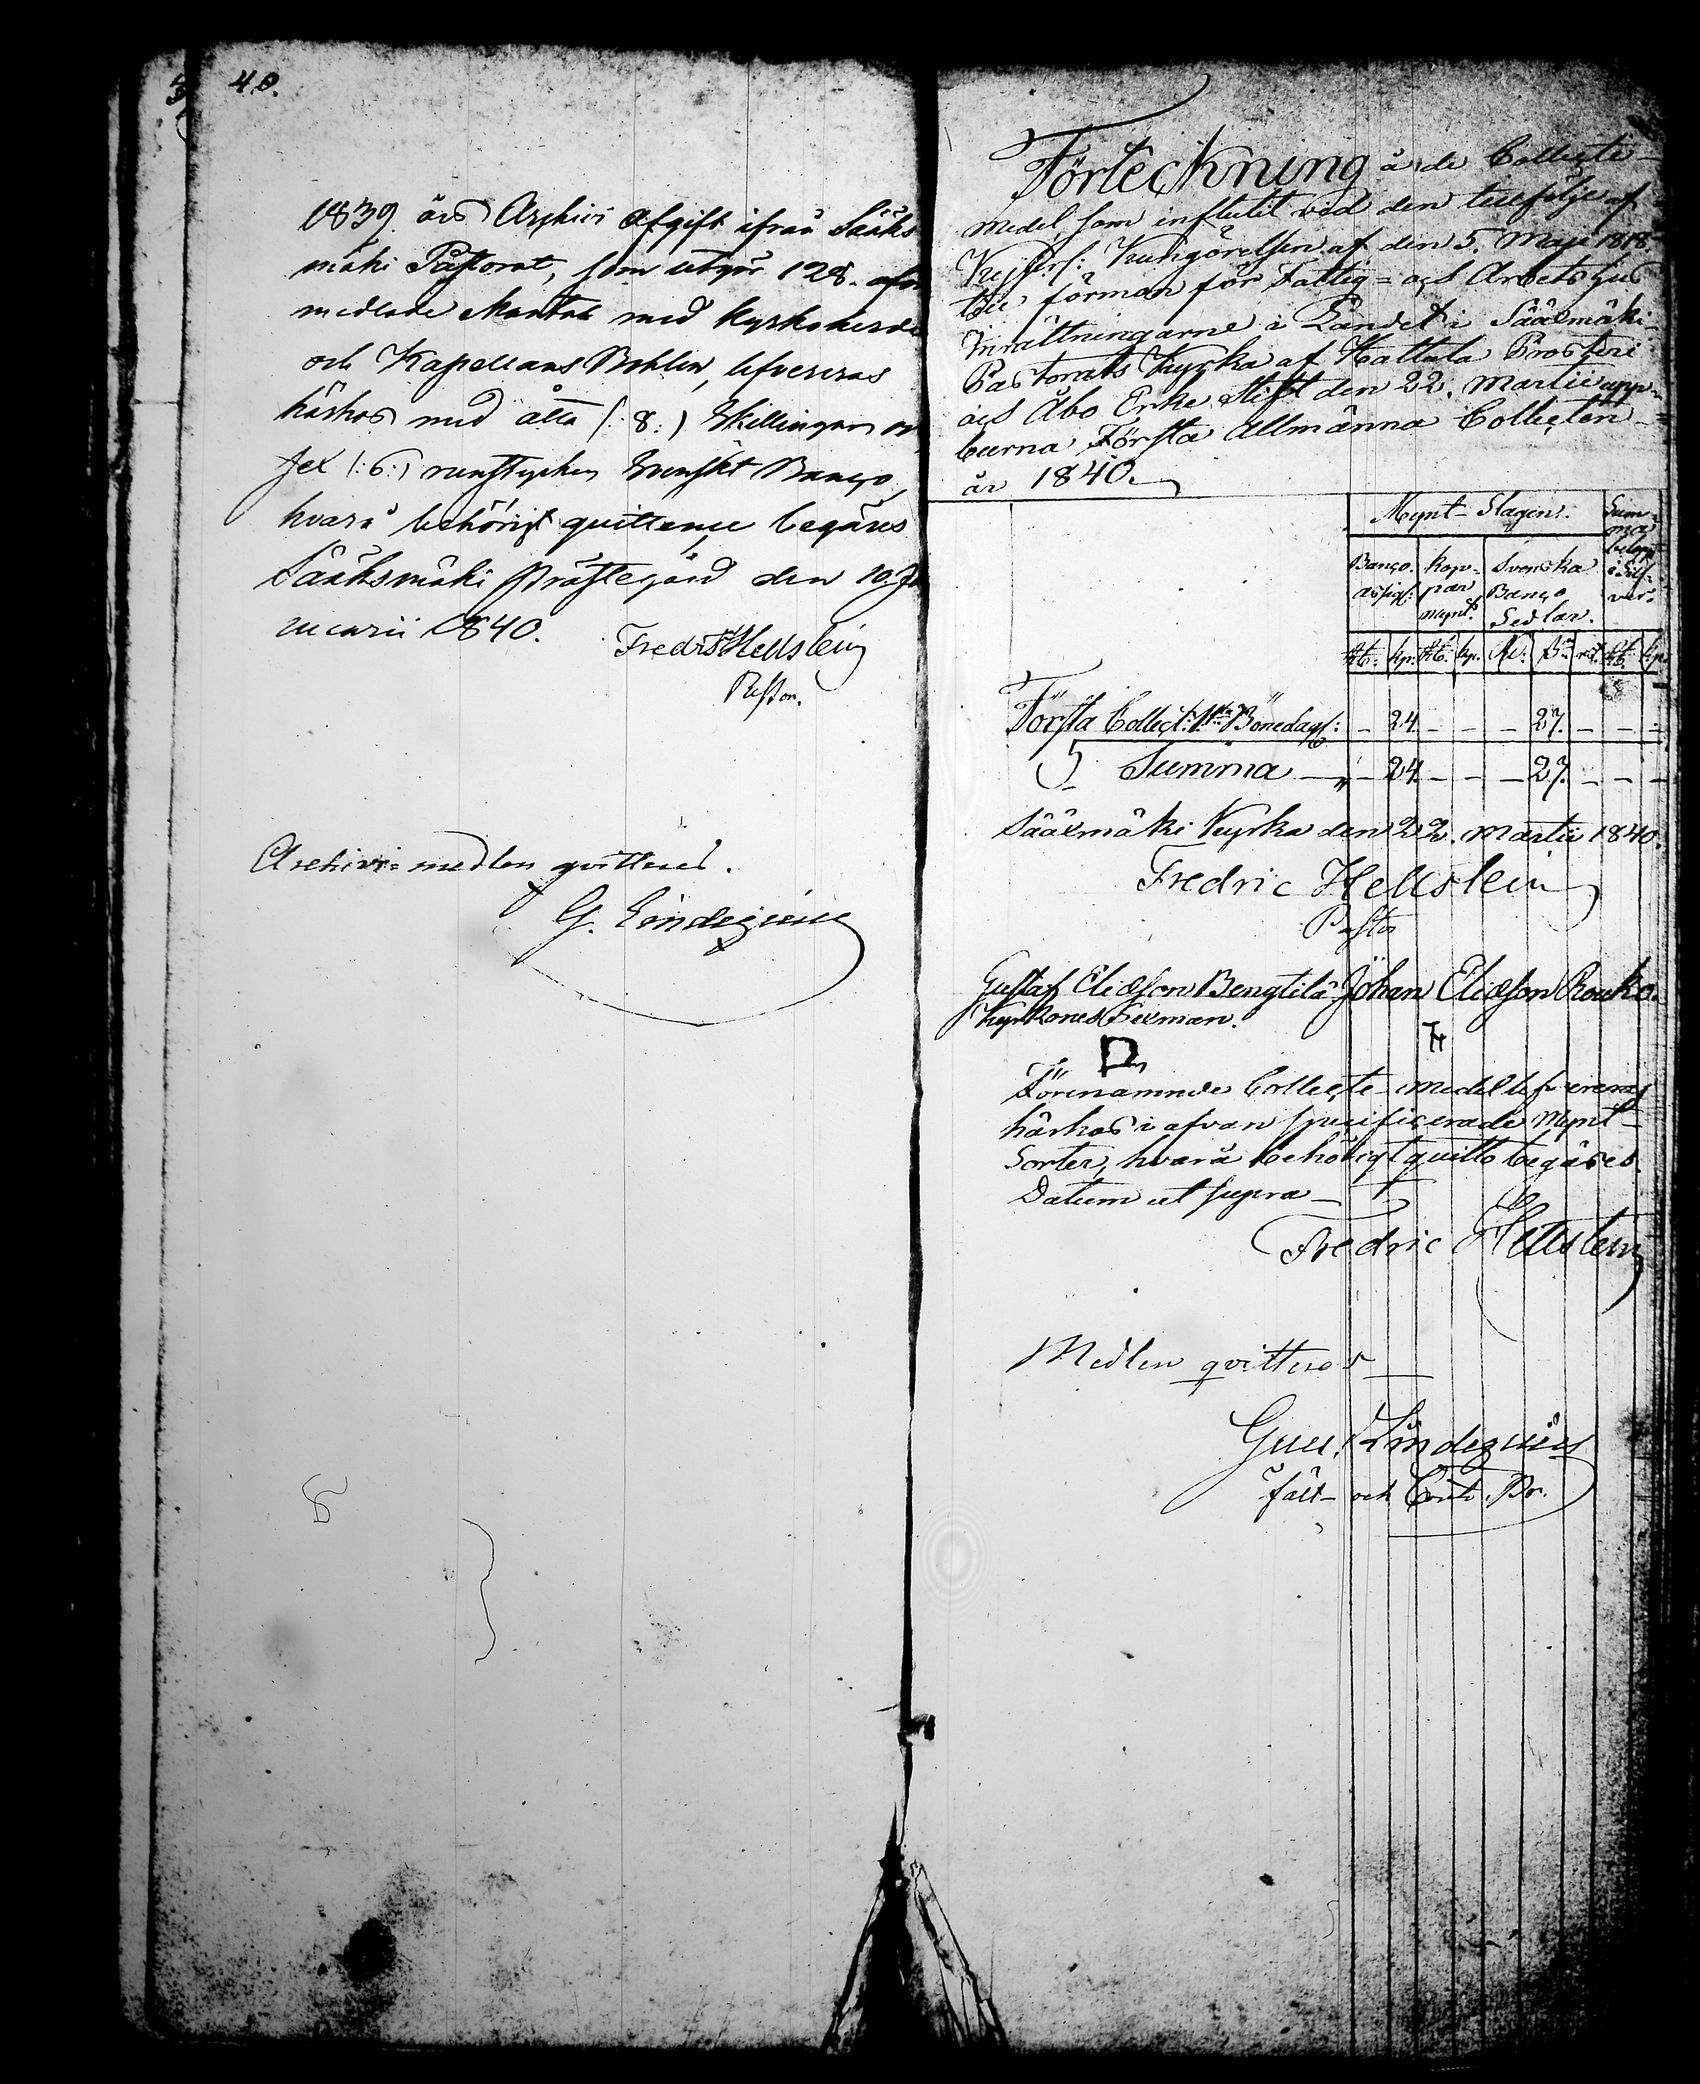 40.
1839. års Archivi Afgift ifrån Sääks
mäki Pastorat, som utgör 128. afor
medlade Mantal med Kyrkoherde
och Kapellans Bohlen, lefvereras
härhos med åtta (: 8 :) Skillingar
sex (: 6 :) runstycken Svenskt Banco,
hvarå behörigt quittence begäres
Sääksmäki Prästegård den 10. Ja
nuarii 1840.
Fredric Hellstein
Pastor.
Archivi-medlen qvitteras.
G. Lindegrén
Förteckning å de Collecte-
medel som influtit vid den tillfölje af
Kejserl: Kungörelsen af den 5. Maji 1818
till förmån för Fattig- och Arbetshus
Inrättningarne i Landet i Sääxmäki
Pastorats Kyrka af Hattula Prosteri
och Åbo Erke Stift den 22. Martii upp-
burna Första Allmänna Collecten
år 1840.
Mynt-Slagen.
Summa belopp i Silfver.
Banco assign: Koppar mynt. Svenska Banco Sedlar.
Rb: kp. Rb. kp. Rd. sk. rst. Rb. kp.
Första Collect: 1sta Bönedag: — 24. — — — 27. — — —
Summa — 24. — — — 27. — — —
Sääxmäki Kyrka den 22. Martii 1840.
Fredric Hellstein
Pastor
Gustaf Eliasson Bengtilä Johan Eliasson Rouko.
Kyrkones Sexman.
Förenämnde Collecte-medel lefvereras
härhos i ofvan specificerade Mynt-
Sorter, hvarå behörigt quitto begäres.
Datum ut supra
Fredric Hellstein
Medlen qvitteras
Gust. Lindegrén
fält- och Cont. Pr.